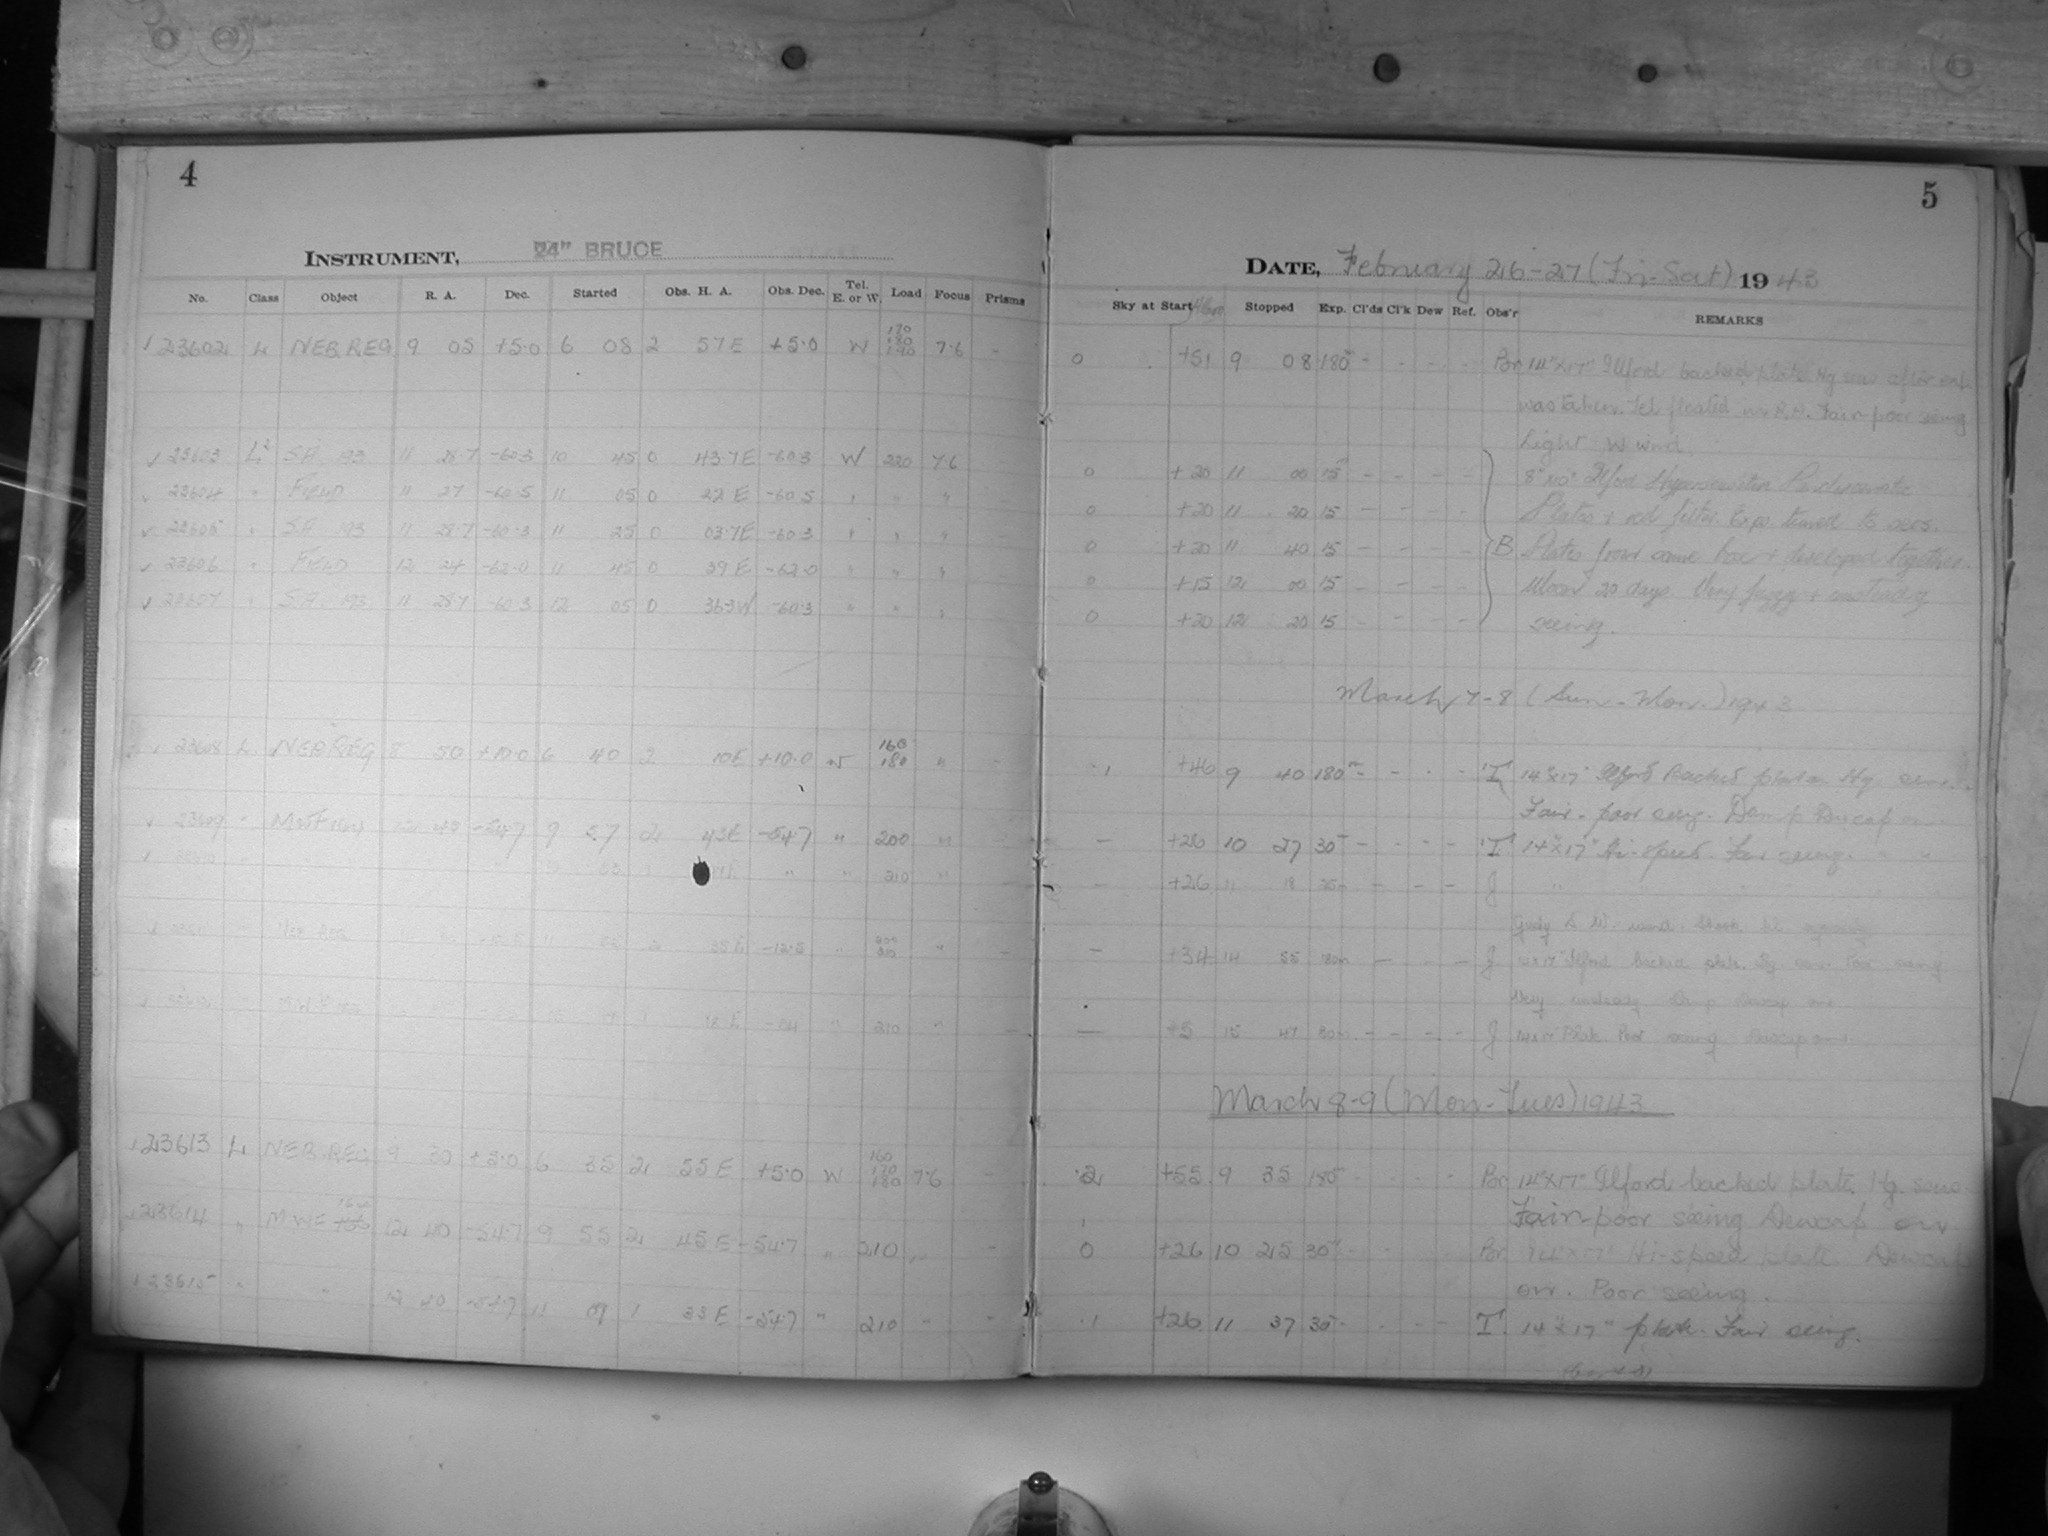 4
INSTRUMENT, 24" BRUCE
No. Class Object R. A. Dec. Started Obs. H. A. Obs. Dec. Tel. E. or W. Load Focus Prisms
23602 L NEB.REG 9 05 +5.0 6 08 2 57E +5.0 W 170 180 190 7.6 -
23603 L² S.A. 193 11 28.7 -60.3 10 45 0 43.7E -60.3 W 220 7.6
23604 " FIELD 11 27 -60.5 11 05 0 22 E -60.5 " " "
23605 " S.A. 193 11 28.7 -60.3 11 25 0 03.7E -60.3 " " "
23606 " FIELD 12 24 -62.0 11 45 0 39 E -62.0 " " "
23607 " S.A. 193 11 28.7 -60.3 12 05 0 36.3W -60.3 " " "
23608 L NEB REG 8 50 +10.0 6 40 2 10E +10.0 W 160 180 " -
23609 " 12 40 -54.7 9 57 2 43E -54.7 " 200 "
" " 210 "
-12.5 " 35E -12.5 " 200 210 " -
18 E " 210 " -
23613 L NEB.REG 9 30 +5.0 6 35 2 55 E +5.0 W 160 170 180 7.6 -
23614 " MWF 12 40 -54.7 9 55 2 45 E -54.7 " 210 " -
23615 " " 12 40 -54.7 11 07 1 33 E -54.7 " 210 " -
5
DATE, February 26-27 (Fri-Sat) 1943
Sky at Start Stopped Exp. Cl'ds Cl'k Dew Ref. Obs'r REMARKS
0 +51 9 08 180m - - - - Br 14"x17" Ilford backed plate. Hg sens after exp.
was taken. Tel floated in R.A. Fair-poor seeing
Light W wind.
0 +20 11 00 15m - - - - 8"x10" Ilford Hypersensitive Panchromatic
0 +20 11 20 15 - - - - Plates + red filter. Exps. timed to secs.
0 +20 11 40 15 - - - - B Plates from same box + developed together.
0 +15 12 00 15 - - - - Moon 20 days. Very fuzzy + unsteady
0 +20 12 20 15 - - - - seeing.
March 7-8 (Sun-Mon.) 1943
.1 +46 9 40 180m - - - - T 14"x17" Ilford Backed plate. Hg. sens.
Fair-poor seeing. Damp Dewcap on
- +26 10 27 30m - - - - T 14"x17" Hi-speed. Fair seeing. " "
- +26 11 18 - - - J "
Gusty S. W. wind. Shook tel.
- +34 14 55 180m - - - J 14x17" Ilford backed plate. Hg sens. Poor seeing
Very unsteady Damp Dewcap on
- +5 15 47 30m - - - - J 14x17" Plate Poor seeing Dewcap on.
March 8-9 (Mon-Tues) 1943
.2 +55 9 35 180m - - - - Br 14"x17" Ilford backed plate. Hg sens
Fair-poor seeing Dewcap on
0 +26 10 25 30m - - - - Br 14"x17" Hi-speed plate. Dewcap
on. Poor seeing.
.1 +26 11 37 30m - - - - T 14"x17" plate. Fair seeing.